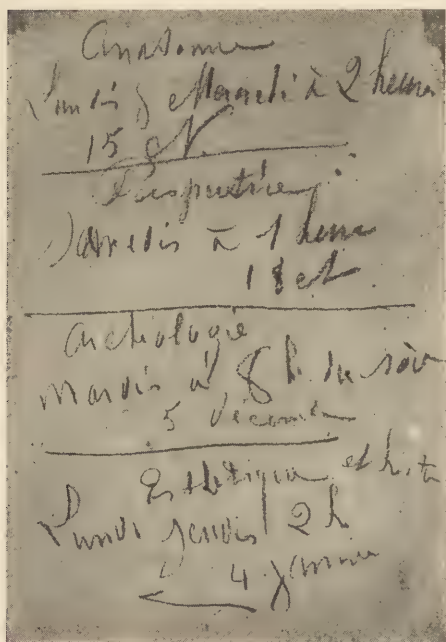 Anatomie
Lundis & Mercredi à 2 heures
15 oct.
Perspective
Samedis à 1 heure
18 oct
Archéologie
Mardis à 8 h. du soir
5 décembre
Esthétique et hist
Lundi jeudis 2 h
4 janvier